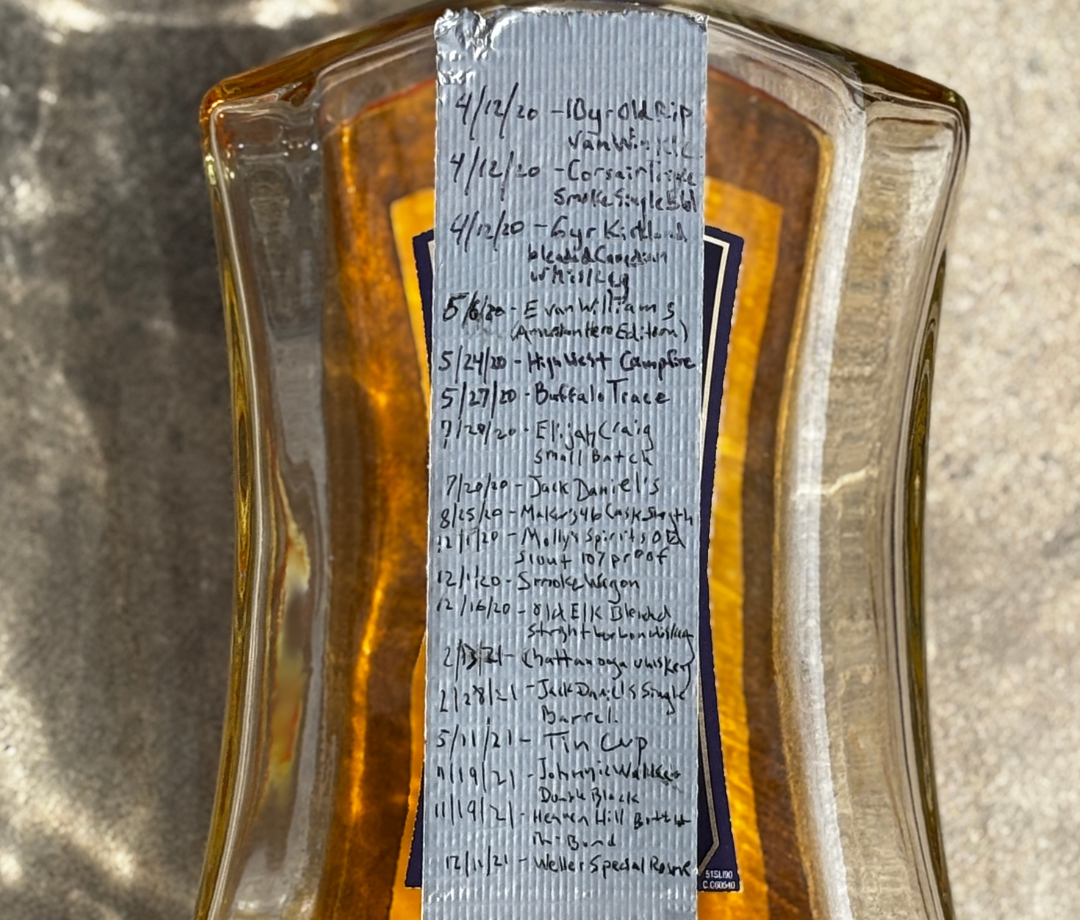 4/12/20 - 10yr Old Rip
Van Winkle
4/12/20 - Corsair
Smoke Single
4/12/20 - 6yr Kirkland
blended Canadian
whiskey
5/6/20 - Evan Williams
(American Hero Edition)
5/24/20 - High West Campfire
5/27/20 - Buffalo Trace
7/20/20 - Elijah Craig
Small Batch
7/20/20 - Jack Daniel's
8/25/20 - Maker's 46 Cask
12/1/20 - Molly's Spirits
107 proof
12/1/20 - Smoke Wagon
12/16/20 - Old Elk Blended
whiskey
2/13/21 - Chattanooga whiskey
2/28/21 - Jack Daniel's Single
Barrel
5/11/21 - Tin Cup
Johnnie Walker
Double Black
11/19/21 - Heaven Hill
in-Bond
12/11/21 - Weller Special
51SLI90
C.C60540